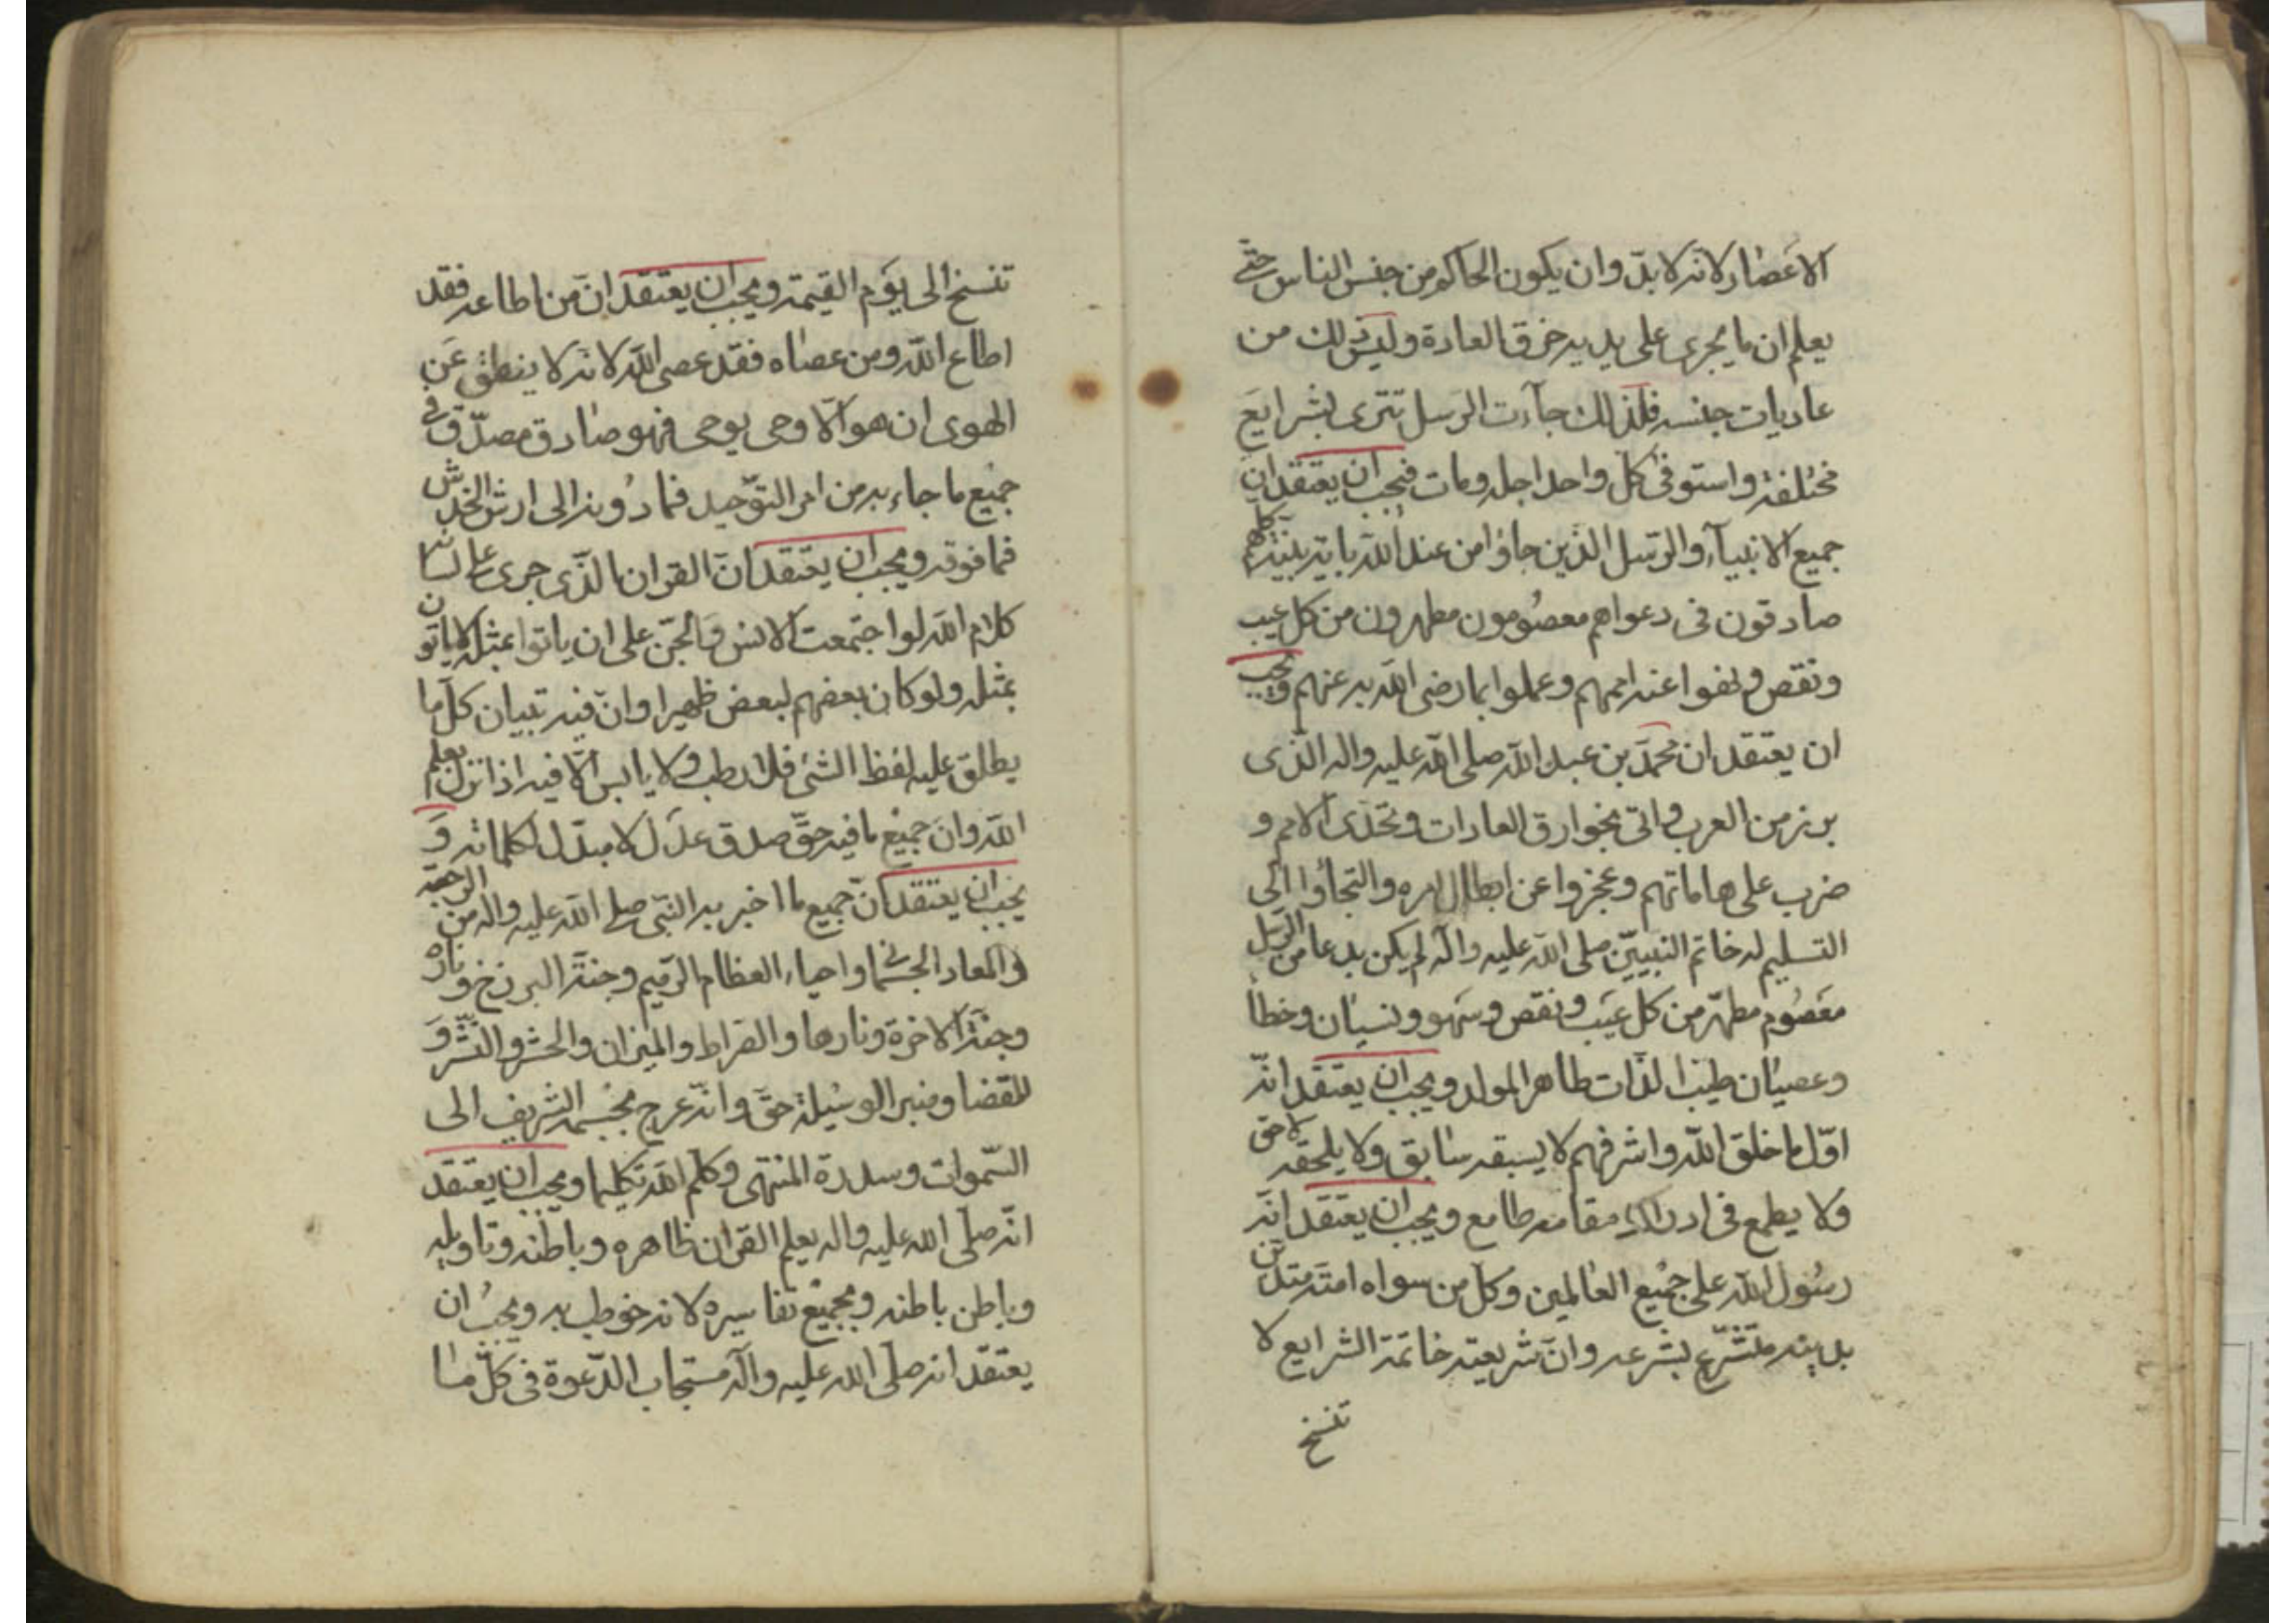 الاعصار لانه لا بدّ وان يكون الحاكم من جنس الناس حتّى
يعلم ان ما يجرى على يديه خرق العادة وليس ذلك من
عاديات جنسه فلذلك جاءت الرسل تترى بشرايع
مختلفة واستوفى كلّ واحد اجله ومات فيجب ان يعتقد ان
جميع الانبيآء والرّسل الذين جاؤا من عند الله باية بيّنة كلهم
صادقون فى دعواهم معصومون مطهرون من كل عيب
ونقص وفوا عند اممهم وعملوا بما رضى الله به عنهم ويجب
ان يعتقد ان محمّد بن عبد الله صلى الله عليه واله الذى
برز من العرب واتى بخوارق العادات وتحدّى الامم و
ضرب على هاماتهم وعجزوا عن ابطال امره والتجأوا الى
التسليم له خاتم النبيّين صلى الله عليه واله لم يكن بدعا من الرسل
معصوم مطهّر من كل عيب ونقص وسهو ونسيان وخطأ
وعصيان طيّب الذات طاهر المولد ويجب ان يعتقد انّه
اوّل ما خلق الله واشرفهم لا يسبقه سابق ولا يلحقه لاحق
ولا يطمع فى ادراك مقامه طامع ويجب ان يعتقد انّه
رسول الله على جميع العالمين وكل من سواه امته متدين
بدينه متشرّع بشرعه وانّ شريعته خاتمة الشرايع لا
تنسخ
تنسخ الى يوم القيمة ويجب ان يعتقد انّ من اطاعه فقد
اطاع الله ومن عصاه فقد عصى الله لانه لا ينطق عن
الهوى ان هو الّا وحى يوحى فهو صادق مصدّق فى
جميع ما جاء به من امر التوّحيد فما دونه الى ارش الخدش
فما فوقه ويجب ان يعتقد انّ القران الذّى جرى على لسانه
كلام الله لو اجتمعت الانس والجنّ على ان ياتوا بمثله لا ياتون
بمثله ولو كان بعضهم لبعض ظهيرا وانّ فيه تبيان كل ما
يطلق عليه لفظ الشئ فلا رطب ولا يابس الّا فيه اذ انزل بعلم
الله وان جميع ما فيه حقّ صدق عدل لا مبدّل لكلماته و
يجب ان يعتقد انّ جميع ما اخبر به النبّى صلى الله عليه واله من الرجعة
والمعاد الجسمانى واحياء العظام الرّميم وجنة البرزخ وناره
وجنة الاخرة ونارها والصراط والميزان والحشر والنشر و
للقضا ومنبر الوسيلة حقّ وانّه عرج بجسمه الشريف الى
السّموات وسدرة المنتهى وكلّم الله تكليما ويجب ان يعتقد
انّه صلّى الله عليه واله يعلم القران ظاهره وباطنه وتاويله
وباطن باطنه وبجميع تفاسيره لانه خوطب به ويجب ان
يعتقد انه صلّى الله عليه وآله مستجاب الدّعوة فى كلّ ما